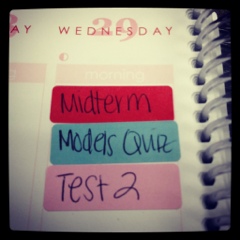 AY WEDNESDAY 29
morning
Midterm
Models Quiz
Test 2